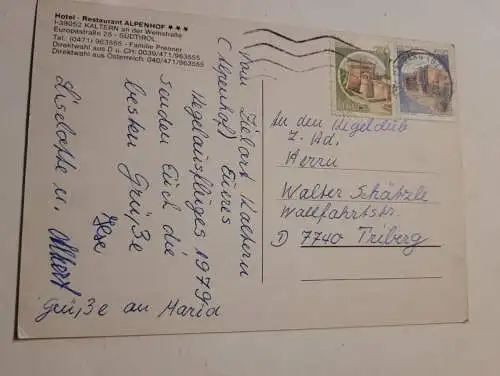 Hotel - Restaurant ALPENHOF ★★★
I-39052 KALTERN an der Weinstraße
Europastraße 25 - SÜDTIROL
Tel. (0471) 963555 - Familie Prenner
Direktwahl aus D u. CH: 0039/471/963555
Direktwahl aus Österreich: 040/471/963555
Vom Zielort Kaltern
(Alpenhof) Eures
Kegelausfluges 1979
senden Euch die
besten Grüße
Liselotte u. Albert
Grüße an Maria
An den Kegelclub
z. Hd.
Herrn
Walter Schätzle
Wallfahrtstr.
D 7740 Triberg